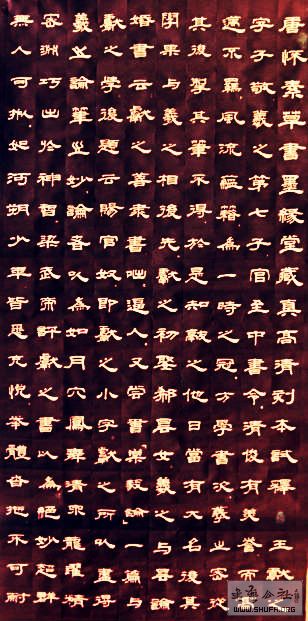 唐懷素草書墨緣堂藏真高清刻本試釋 王獻之
字子敬羲之第七子官至中書令清俊有美譽而高
邁不羈風流蘊藉為一時之冠方學書次羲之密從
其後掣其筆不得於是知獻之他日當有大名後其
學果与羲之相後先獻之初娶郗曇女羲之与曇論
婚書云獻之善隸書咄逼人又嘗書樂毅論一篇与
獻之學後題云賜官奴即獻之小字獻之所以盡得
羲之論筆之妙論者以為如丹穴鳳舞清泉龍躍精
密淵巧出於神智梁武帝評獻之書以為絕妙超群
無人可擬如河朔少年皆悉充悅舉體沓拖不可耐
WWW.SHUFA.ORG